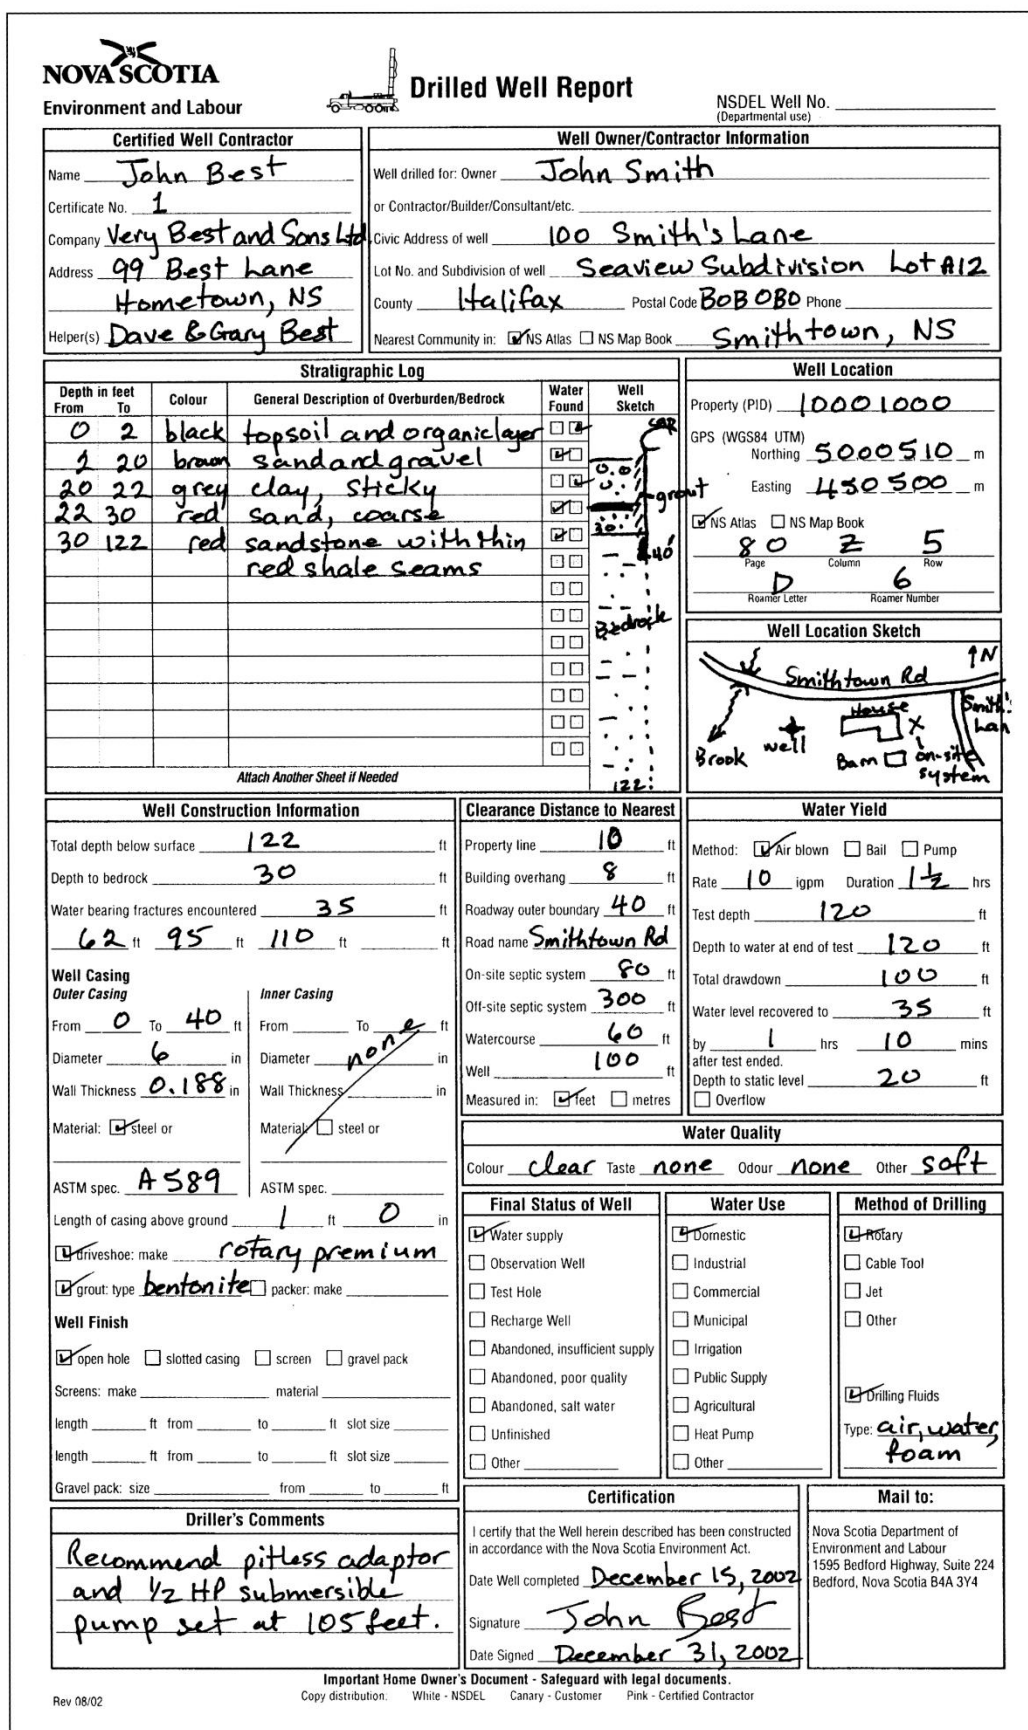 NOVA SCOTIA
Environment and Labour
Drilled Well Report
NSDEL Well No.
(Departmental use)
Certified Well Contractor
Name John Best
Certificate No. 1
Company Very Best and Sons Ltd
Address 99 Best Lane
Hometown, NS
Helper(s) Dave & Gary Best
Well Owner/Contractor Information
Well drilled for: Owner John Smith
or Contractor/Builder/Consultant/etc.
Civic Address of well 100 Smith's Lane
Lot No. and Subdivision of well Seaview Subdivision Lot A12
County Halifax Postal Code BOB OBO Phone
Nearest Community in: NS Atlas NS Map Book Smithtown, NS
Stratigraphic Log
Depth in feet Colour General Description of Overburden/Bedrock Water Well
From To Found Sketch
0 2 black topsoil and organic layer
2 20 brown sand and gravel
20 22 grey clay, sticky
22 30 red sand, coarse
30 122 red sandstone with thin
red shale seams
cap
grout
40'
Bedrock
122'
Attach Another Sheet if Needed
Well Location
Property (PID) 10001000
GPS (WGS84 UTM)
Northing 5000510 m
Easting 450500 m
NS Atlas NS Map Book
80 Z 5
Page Column Row
D 6
Roamer Letter Roamer Number
Well Location Sketch
N
Smithtown Rd
House
Smith's
Lan
Brook well Barn on-site
system
Well Construction Information
Total depth below surface 122 ft
Depth to bedrock 30 ft
Water bearing fractures encountered 35 ft
62 ft 95 ft 110 ft ft
Well Casing
Outer Casing Inner Casing
From 0 To 40 ft From To none ft
Diameter 6 in Diameter none in
Wall Thickness 0.188 in Wall Thickness in
Material: steel or Material: steel or
ASTM spec. A 589 ASTM spec.
Length of casing above ground 1 ft 0 in
driveshoe: make rotary premium
grout: type bentonite packer: make
Well Finish
open hole slotted casing screen gravel pack
Screens: make material
length ft from to ft slot size
length ft from to ft slot size
Gravel pack: size from to ft
Clearance Distance to Nearest
Property line 10 ft
Building overhang 8 ft
Roadway outer boundary 40 ft
Road name Smithtown Rd
On-site septic system 80 ft
Off-site septic system 300 ft
Watercourse 60 ft
Well 100 ft
Measured in: feet metres
Water Yield
Method: Air blown Bail Pump
Rate 10 igpm Duration 1 ½ hrs
Test depth 120 ft
Depth to water at end of test 120 ft
Total drawdown 100 ft
Water level recovered to 35 ft
by 1 hrs 10 mins
after test ended.
Depth to static level 20 ft
Overflow
Water Quality
Colour clear Taste none Odour none Other soft
Final Status of Well
Water supply
Observation Well
Test Hole
Recharge Well
Abandoned, insufficient supply
Abandoned, poor quality
Abandoned, salt water
Unfinished
Other
Water Use
Domestic
Industrial
Commercial
Municipal
Irrigation
Public Supply
Agricultural
Heat Pump
Other
Method of Drilling
Rotary
Cable Tool
Jet
Other
Drilling Fluids
Type: air, water,
foam
Driller's Comments
Recommend pitless adaptor
and 1/2 HP submersible
pump set at 105 feet.
Certification
I certify that the Well herein described has been constructed
in accordance with the Nova Scotia Environment Act.
Date Well completed December 15, 2002
Signature John Best
Date Signed December 31, 2002
Mail to:
Nova Scotia Department of
Environment and Labour
1595 Bedford Highway, Suite 224
Bedford, Nova Scotia B4A 3Y4
Important Home Owner's Document - Safeguard with legal documents.
Rev 08/02
Copy distribution: White - NSDEL Canary - Customer Pink - Certified Contractor